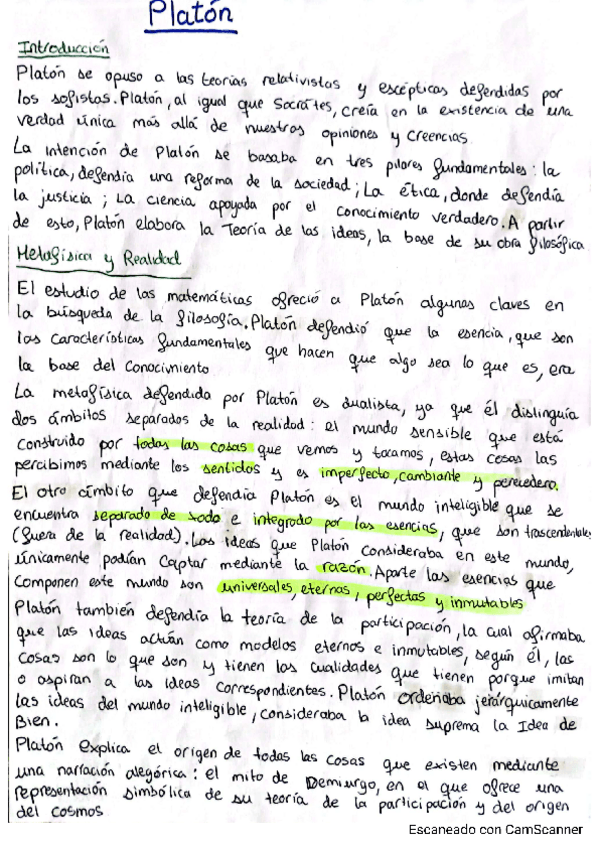 Platón
Introducción
Platón se opuso a las teorías relativistas y escépticas defendidas por
los sofistas. Platón, al igual que Socrátes, creía en la existencia de una
verdad única más allá de nuestros opiniones y creencias
La intención de Platón se basaba en tres pilares fundamentales: la
política, defendía una reforma de la sociedad; La ética, donde defendía
la justicia; La ciencia apoyada por el conocimiento verdadero. A partir
de esto, Platón elabora la Teoría de las ideas, la base de su obra filosófica
Metafísica y Realidad
El estudio de las matemáticas ofreció a Platón algunas claves en
la búsqueda de la filosofía. Platón defendió que la esencia, que son
las características fundamentales que hacen que algo sea lo que es, era
la base del conocimiento
La metafísica defendida por Platón es dualista, ya que él distinguía
dos ámbitos separados de la realidad: el mundo sensible que está
construido por todas las cosas que vemos y tocamos, estas cosas las
percibimos mediante los sentidos y es imperfecto, cambiante y perecedero.
El otro ámbito que defendía Platón es el mundo inteligible que se
encuentra separado de todo e integrado por las esencias, que son trascendentales
(fuera de la realidad). Las ideas que Platón consideraba en este mundo,
únicamente podían captar mediante la razón. Aparte las esencias que
componen este mundo son universales, eternas, perfectas y inmutables
Platón también defendía la teoría de la participación, la cual afirmaba
que las ideas actúan como modelos eternos e inmutables, según él, las
cosas son lo que son y tienen las cualidades que tienen porque imitan
o aspiran a las ideas correspondientes. Platón ordenaba jerárquicamente
las ideas del mundo inteligible, consideraba la idea suprema la Idea de
Bien.
Platón explica el origen de todas las cosas que existen mediante
una narración alegórica: el mito de Demiurgo, en el que ofrece una
representación simbólica de su teoría de la participación y del origen
del cosmos
Escaneado con CamScanner